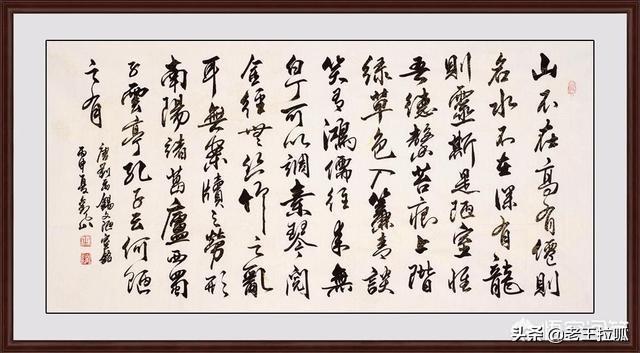 山不在高有僊則
名水不在深有龍
則靈斯是陋室惟
吾德馨苔痕上階
綠草色入簾青談
笑有鴻儒往來無
白丁可以調素琴閱
金經無丝竹之亂
耳無案牘之勞形
南陽諸葛廬西蜀
子雲亭孔子云何陋
之有
唐劉禹錫文陋室銘
丙申夏
悟空问答
头条 @老王拉呱